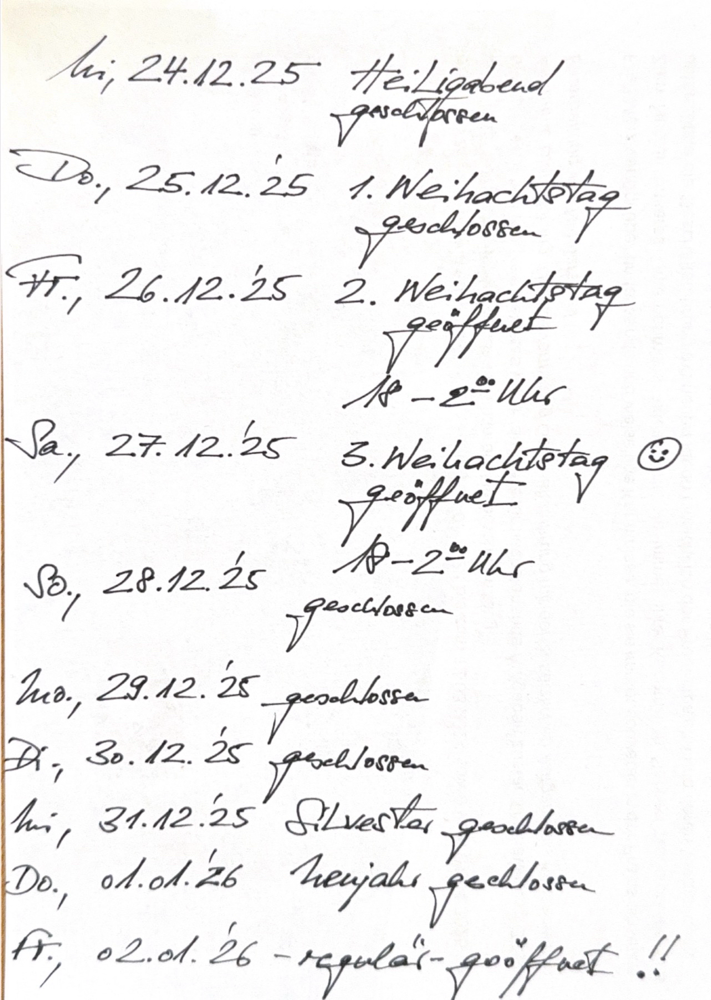 Mi, 24.12.25 Heiligabend
geschlossen
Do., 25.12.'25 1. Weihachtstag
geschlossen
Fr., 26.12.'25 2. Weihachtstag
geöffnet
18 – 2⁰⁰ Uhr
Sa., 27.12.'25 3. Weihachtstag ☺
geöffnet
18 – 2⁰⁰ Uhr
So., 28.12.'25
geschlossen
Mo., 29.12.'25 geschlossen
Di., 30.12.'25 geschlossen
Mi, 31.12.'25 Silvester geschlossen
Do., 01.01.'26 Neujahr geschlossen
Fr., 02.01.'26 - regulär - geöffnet !!